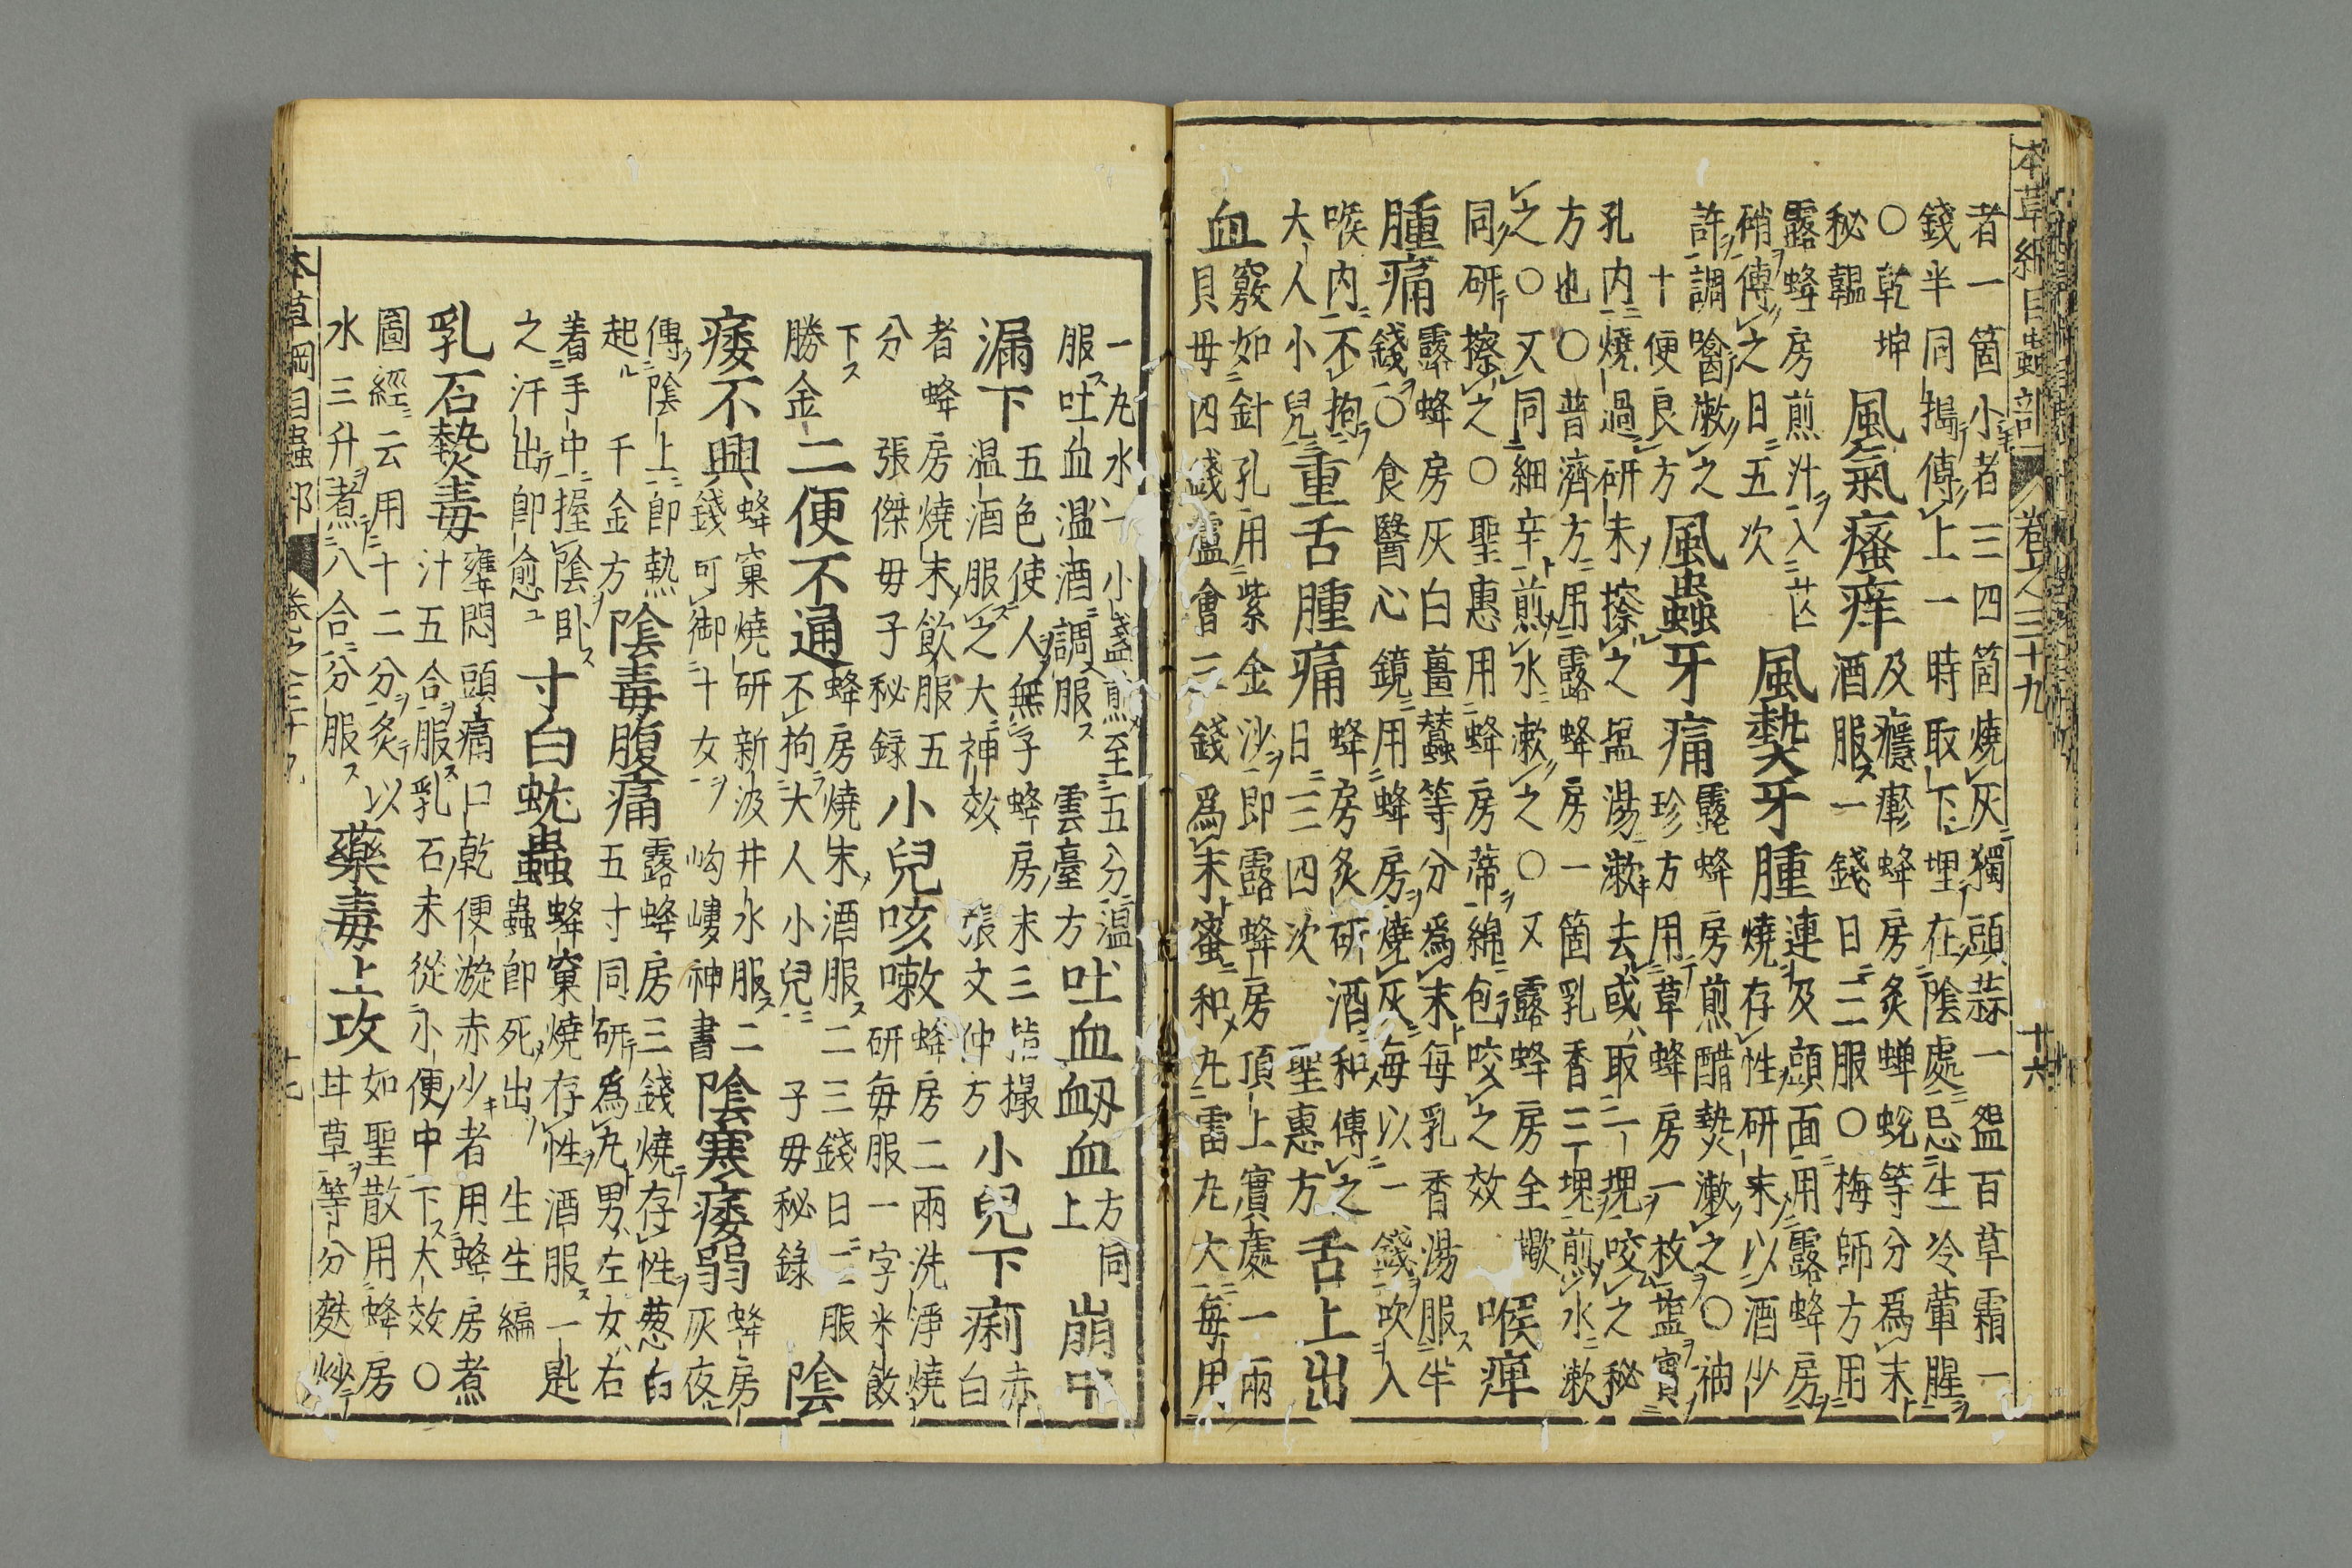 本草綱目蟲部 卷之三十九 十六
者一箇小者三四箇燒灰獨頭蒜一盌百草霜一
錢半同搗傅上一時取下埋在陰處忌生冷葷腥
○乾坤
秘韞
風氣瘙痒
及癮疹蜂房炙蟬蛻等分爲末
酒服一錢日二三服○梅師方用
露蜂房煎汁入芒
硝傅之日五次
風熱牙腫
連及頭面用露蜂房
燒存性研末以酒少
許調噙漱之
十便良方
風蟲牙痛
露蜂房煎醋熱漱之○袖
珍方用草蜂房一枚盐實
孔内燒過研末擦之盐湯漱去或取一塊咬之秘
方也○普濟方用露蜂房一箇乳香三塊煎水漱
之○又同細辛煎水漱之○又露蜂房全蠍
同研擦之○聖惠用蜂房蒂綿包咬之效
喉痺
腫痛
露蜂房灰白薑蠶等分爲末每乳香湯服半
錢○食醫心鏡用蜂房燒灰每以一錢吹入
喉内不拘
大人小兒
重舌腫痛
蜂房炙研酒和傅之
日三四次 聖惠方
舌上出
血
竅如針孔用紫金沙即露蜂房頂上實處一兩
貝母四錢蘆會三錢爲末蜜和丸雷丸大每用
一丸水一小盞煎至五分溫
服吐血溫酒調服 雲臺方
吐血衂血
方同
上
崩中
漏下
五色使人無子蜂房末三指撮
温酒服之大神效 張文仲方
小兒下痢
赤
白
者蜂房燒末飲服五
分 張傑母子秘録
小兒咳嗽
蜂房二兩洗淨燒
研每服一字米飲
下
勝金
二便不通
蜂房燒末酒服二三錢日二服
不拘大人小兒 子母秘録
陰
痿不興
蜂窠燒研新汲井水服二
錢可御十女 岣嶁神書
陰寒痿弱
蜂房
灰夜
傅陰上即熱
起 千金方
陰毒腹痛
露蜂房三錢燒存性葱白
五寸同研爲丸男左女右
着手中握陰卧
之汗出即愈
寸白蚘蟲
蜂窠燒存性酒服一匙
蟲即死出 生生編
乳石熱毒
壅悶頭痛口乾便漩赤少者用蜂房煮
汁五合服乳石末從小便中下大效○
圖經云用十二分炙以
水三升煮八合分服
藥毒上攻
如聖散用蜂房
甘草等分麩炒
本草綱目蟲部 卷之三十九 十七